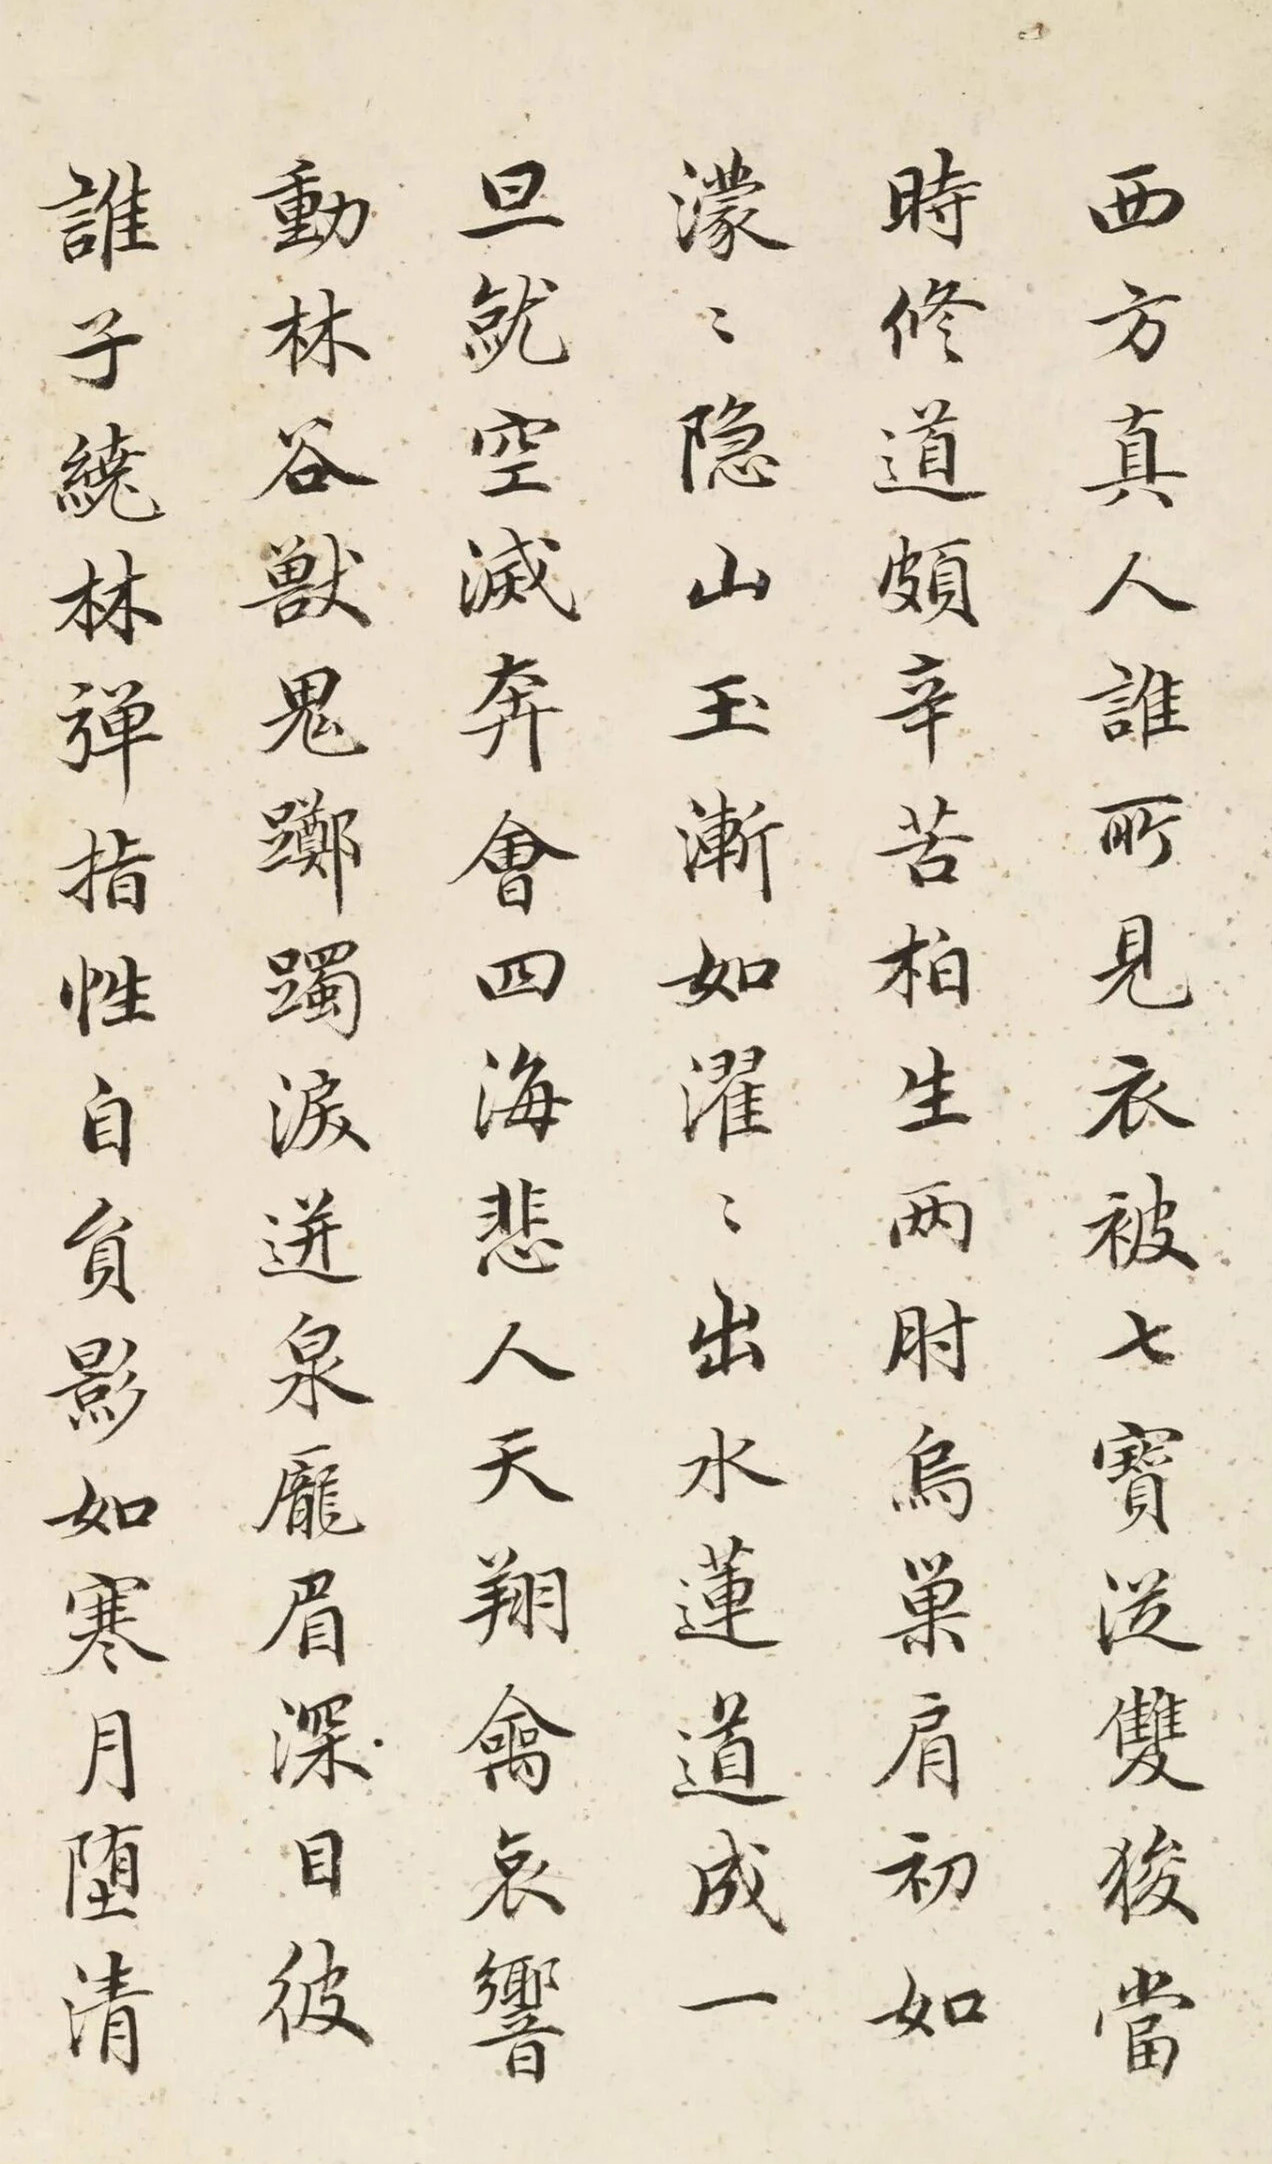 西方真人誰所見衣被七寶從雙狻當
時修道頗辛苦柏生兩肘烏巢肩初如
濛〻隐山玉漸如濯〻出水蓮道成一
旦就空滅奔會四海悲人天翔禽哀響
動林谷獸鬼躑躅淚迸泉龐眉深目彼
誰子繞林彈指性自負影如寒月堕清